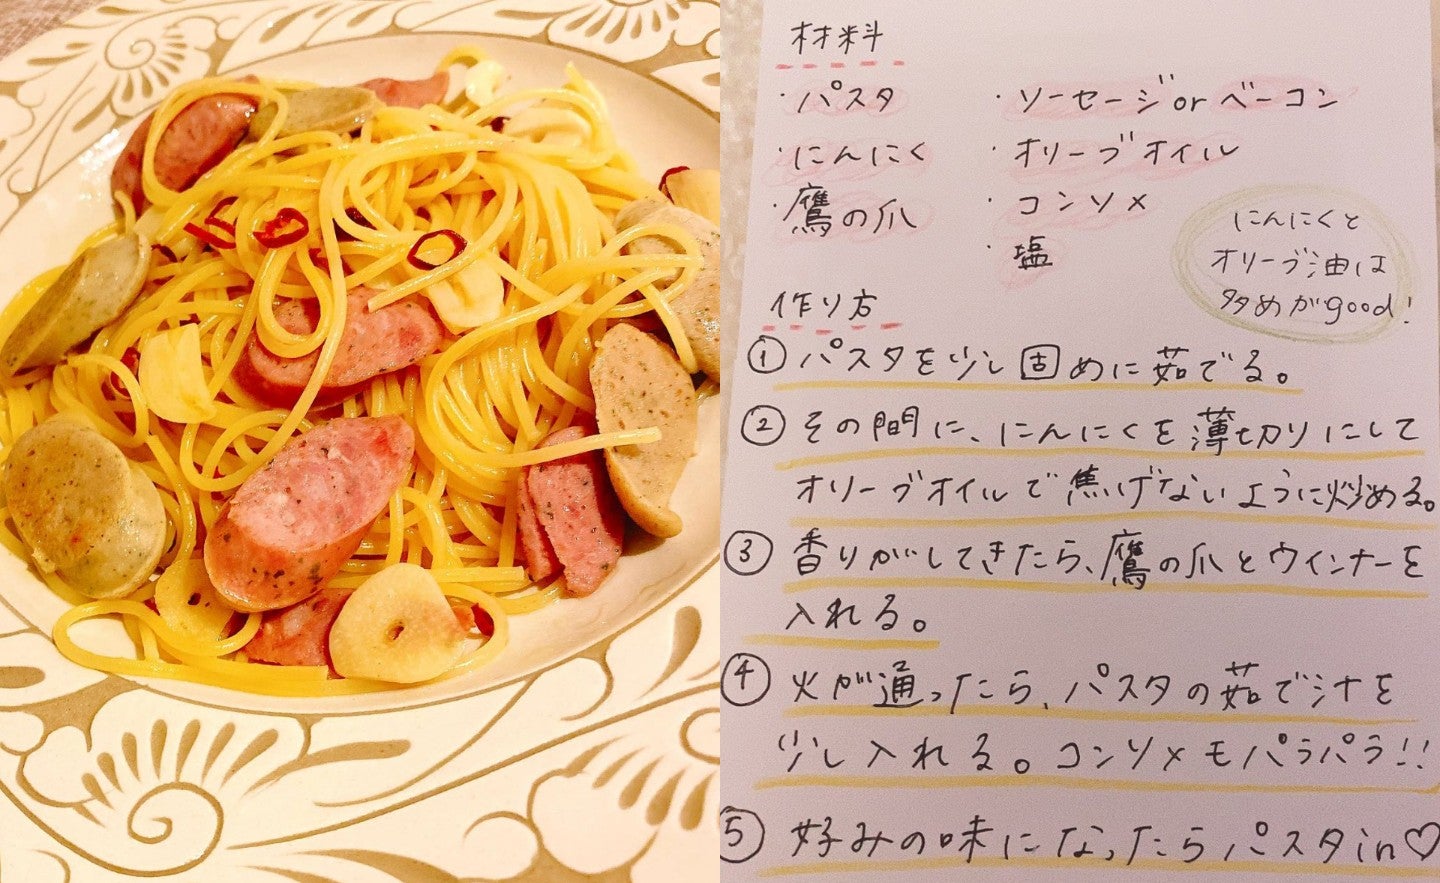 材料
・パスタ
・にんにく
・鷹の爪
・ソーセージorベーコン
・オリーブオイル
・コンソメ
・塩
にんにくと
オリーブ油は
多めがgood!
作り方
① パスタを少し固めに茹でる。
② その間に、にんにくを薄切りにして
オリーブオイルで焦げないように炒める。
③ 香りがしてきたら、鷹の爪とウインナーを
入れる。
④ 火が通ったら、パスタの茹で汁を
少し入れる。コンソメモパラパラ!!
⑤ 好みの味になったらパスタin♡